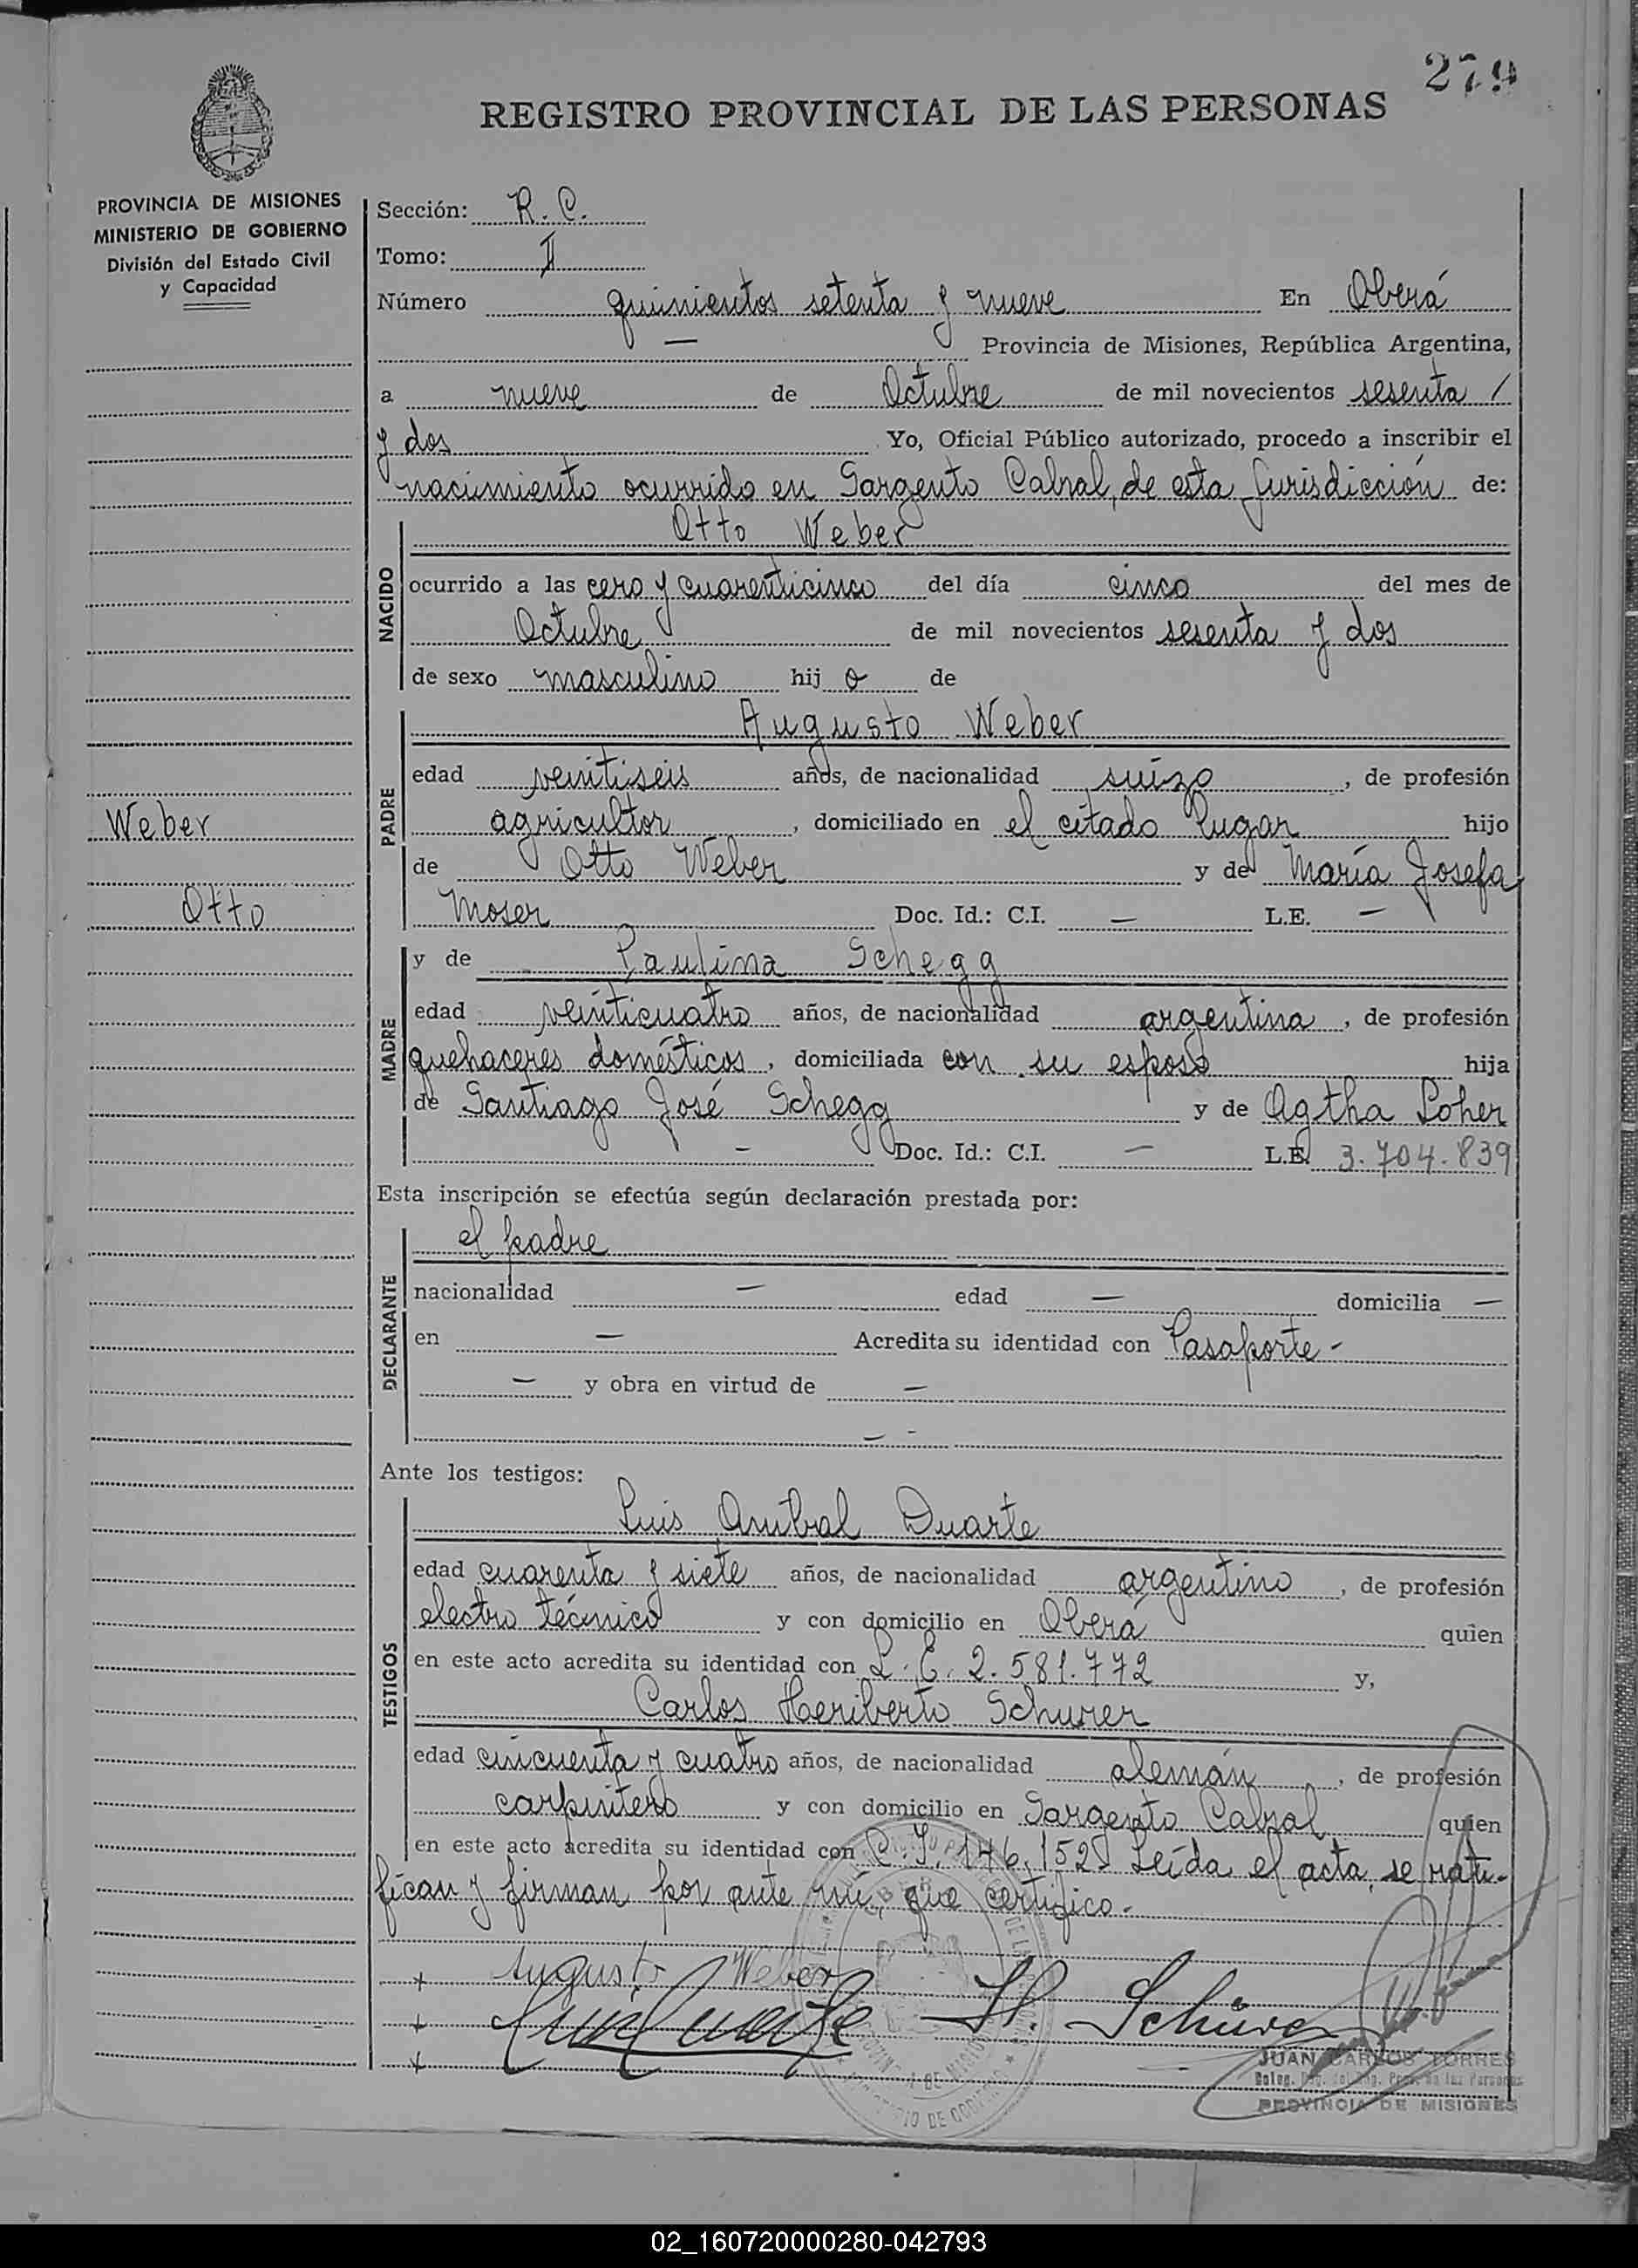 279
REGISTRO PROVINCIAL DE LAS PERSONAS
PROVINCIA DE MISIONES
MINISTERIO DE GOBIERNO
División del Estado Civil
y Capacidad
Weber
Otto
Sección: R. C.
Tomo: II
Número quinientos setenta y nueve En Oberá
— Provincia de Misiones, República Argentina,
a nueve de Octubre de mil novecientos sesenta /
y dos Yo, Oficial Público autorizado, procedo a inscribir el
nacimiento ocurrido en Sargento Cabral, de esta Jurisdicción de:
NACIDO
Otto Weber
ocurrido a las cero y cuarenticinco del día cinco del mes de
Octubre de mil novecientos sesenta y dos
de sexo masculino hij o de
PADRE
Augusto Weber
edad veintiseis años, de nacionalidad suizo, de profesión
agricultor, domiciliado en el citado lugar hijo
de Otto Weber y de María Josefa
Moser Doc. Id.: C.I. — L.E. —
MADRE
y de Paulina Schegg
edad veinticuatro años, de nacionalidad argentina, de profesión
quehaceres domésticos, domiciliada con su esposo hija
de Santiago José Schegg y de Agtha Loher
— Doc. Id.: C.I. — L.E. 3.704.839
Esta inscripción se efectúa según declaración prestada por:
DECLARANTE
el padre
nacionalidad — edad — domicilia —
en — Acredita su identidad con Pasaporte -
— y obra en virtud de —
— -
Ante los testigos:
TESTIGOS
Luis Anibal Duarte
edad cuarenta y siete años, de nacionalidad argentino, de profesión
electro técnico y con domicilio en Oberá quien
en este acto acredita su identidad con L. E. 2.581.772 y,
Carlos Heriberto Schurer
edad cincuenta y cuatro años, de nacionalidad alemán, de profesión
carpintero y con domicilio en Sargento Cabral quien
en este acto acredita su identidad con C. I. 146.152. Leída el acta, se rati-
fican y firman por ante mí, que certifico.-
+ Augusto Weber
+ H. Schürer
+
JUAN CARLOS TORRES
PROVINCIA DE MISIONES
02_160720000280-042793